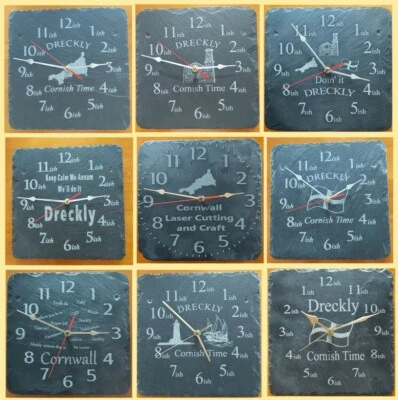 12ish
11ish 1ish
DRECKLY
10ish 2ish
9ish 3ish
8ish Cornish Time 4ish
7ish 5ish
6ish
12ish
11ish 1ish
DRECKLY
10ish 2ish
9ish 3ish
8ish Cornish Time 4ish
7ish 5ish
6ish
12ish
11ish 1ish
10ish 2ish
9ish 3ish
Doin' it
8ish DRECKLY 4ish
7ish 5ish
6ish
12ish
11ish 1ish
Keep Calm We Assum
10ish We'll do it 2ish
9ish Dreckly 3ish
8ish 4ish
7ish 5ish
6ish
12
11 1
10 2
9 3
Cornwall
8 Laser Cutting 4
and Craft
7 5
6
12ish
11ish 1ish
DRECKLY
10ish 2ish
9ish 3ish
8ish Cornish Time 4ish
7ish 5ish
6ish
12
11 1
10 2
Dreckly
9 3
8 Cornwall 4
7 5
6
12ish
11ish 1ish
DRECKLY
10ish 2ish
9ish 3ish
8ish Cornish Time 4ish
7ish 5ish
6ish
Dreckly
11ish 10ish
2ish
9ish 3ish
8ish Cornish Time 4ish
7ish 5ish
6ish